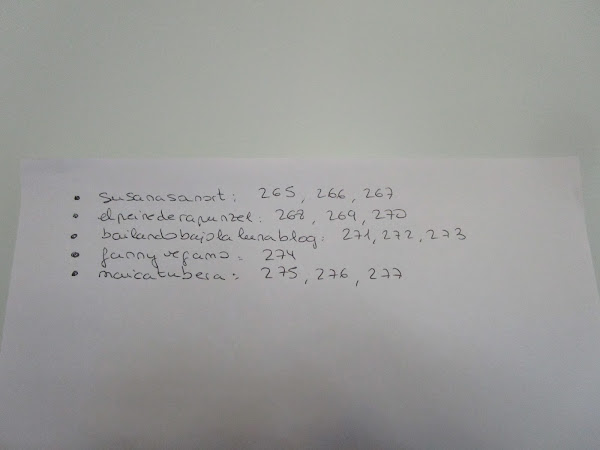 • susanasanart: 265, 266, 267
• elpeinederapunzel: 268, 269, 270
• bailandobajolalunablog: 271, 272, 273
• fannyvegams: 274
• maicatubera: 275, 276, 277